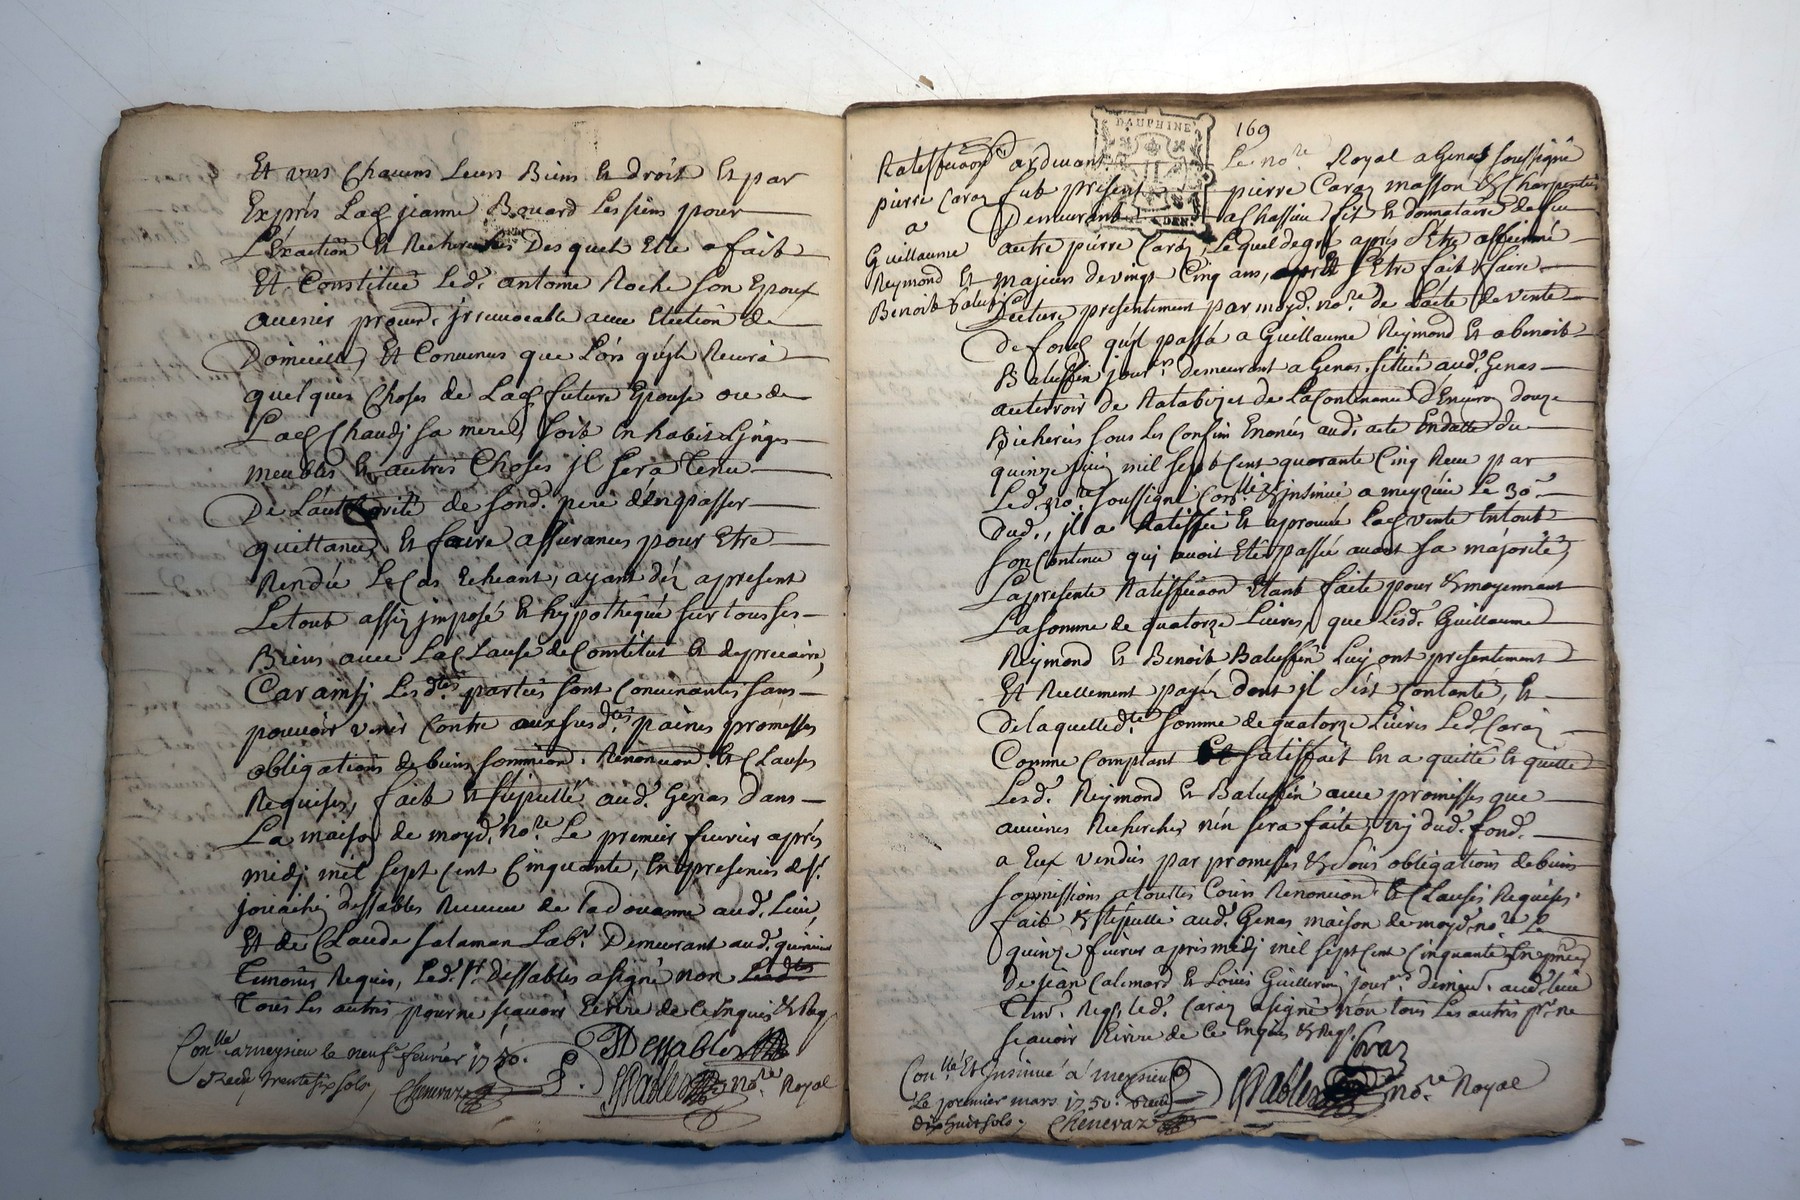 Et uns Chacuns Leurs Biens Et droit Et par
Exprés Lad. jeanne Bouard Les siens pour
L'Exaction Et Recherches Desquels Elle a fait
Et Constitué Led. antoine Roche son Epoux
avenir procur. jrrevocable avec Election de
Domicille, Et Convenus que Lors qu'jl Recevra
quelques Choses de Lad. future Epouse ou de
Lad. Chaudj sa mere, soit en habits Linges
meubles Et autres Choses jl sera Tenu
De L'authorité de sond. pere d'en passer
quittance, Et faire assurances pour Etre
Rendüe Le Cas Echeant, ayant déz apresent
Le tout assiz jmposé Et hypothequé sur tous ses
Biens avec La Clause de Constitut Et de precaire,
Car ainsj Lesd.tes parties sont Convenantes sans
pouvoir venir Contre aux susd.tes paines promesses
obligations de biens soumission. Renoncion. Et Clauses
Requises, fait Et stipullé aud. Genas dans
La maison de moyd. No.re Le premier fevrier aprés
midj mil sept Cent Cinquante, En presences de s.r
joachin dessables Receveur de La doüanne aud. Lieu,
Et de Claude salaman Lab.r Demeurant aud.
Temoins Requis, Led. s.r dessables a signé non
Tous Les autres pour ne sçavoir Ecrire de ce Enquis & Req.
Con.llé a meysieu le neuf.e fevrier 1750.
Receu trente six sols, Chenevaz
JDessables
No.re Royal
DAUPHINE
169
Ratiffica͠on
pierre Caraz
a
Guillaume
Reymond Et
Benoit
Pardevant Le no.re Royal a Genas soussigné
fut présent pierre Caraz masson & Charpentier
Demeurant a Chassieu fils Et donnataire de feu
autre piérre Caraz, Lequel de gré aprés s'Etre affirmé
majeur de vingt Cinq ans, Et s'Etre fait faire
Lecture presentement par moyd. no.re de L'acte de vente
de fond qu'jl passa a Guillaume Reymond Et a benoit
Baluffin jour.rs demeurant a Genas, sittué aud. Genas
au terroir de de La Contenance d'Environ douze
Bicherées sous Les Confins Enoncés aud. acte En datte du
quinze mil sept Cent quarante Cinq Receu par
Led. no.re soussigné Con.llé & jnsinué a meyzieu Le 30.e
dud., jl a Ratiffié Et aprouvé Lad. vente En tout
son Contenu quj avoit Eté passée avant sa majorité,
La presente Ratifficâon Etant faite pour & moyennant
La somme de quatorze Livres, que Lesd. Guillaume
Reymond Et Benoit Baluffin Luy ont presentement
Et Reellement payée dont jl s'ést Contanté, Et
de laquelled.te somme de quatorze Livres Led. Caraz
Comme Comptant Et satisfait En a quitté Et quitte
Lesd. Reymond Et Baluffin avec promesses que
aucunes Recherches n'en sera faite, nj dud. fond.
a Eux vendus par promesses & sous obligations de biens
soumissions a touttes Cours Renoncion Et Clauses Requises
fait & stipullé aud. Genas maison de moyd. no.re Le
quinze fevrier aprés midj mil sept Cent Cinquante En p͠nces
de jean Calemard Et Loüis Guillermin jour.rs demeu. aud. lieu
Tem. Req. Led. Caraz a signé non tous Les autres p.r ne
sçavoir Ecrire de Ce Enquis & Req.
Caraz
Con.llé Et jnsinué á meysieu
Le premier mars 1750. Receu
dix huit sols, Chenevaz
No.re Royal